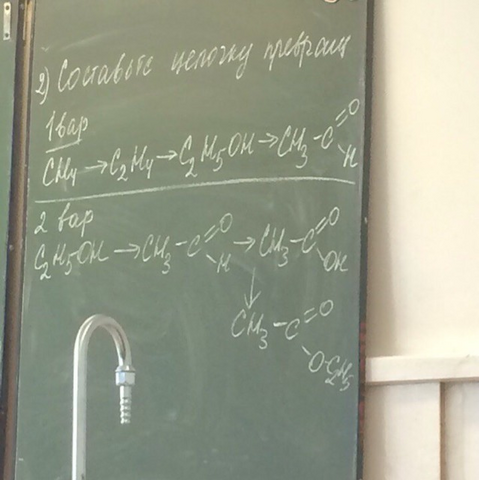 2) Составьте цепочку превращ
1 вар
CH4 → C2H4 → C2H5OH → CH3 - C =O H
2 вар
C2H5OH → CH3 - C =O H → CH3 - C =O OH
↓
CH3 - C =O O-C2H5